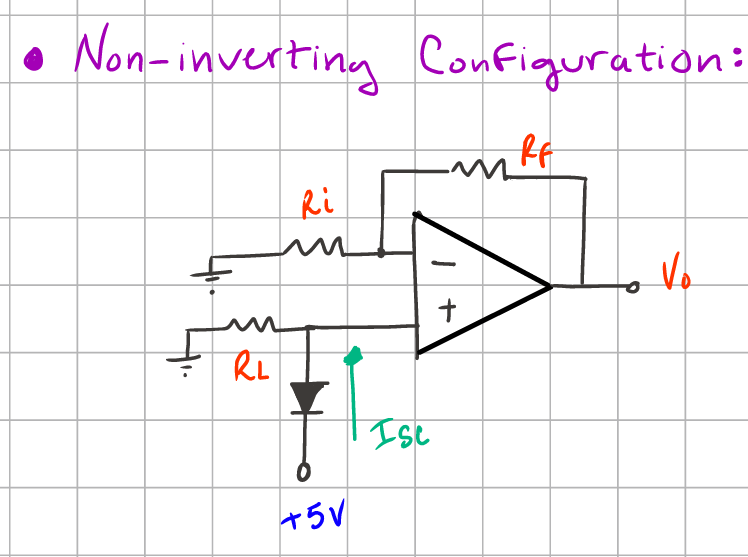 • Non-inverting Configuration:
RF
Ri
−
Vo
+
RL
Isc
+5V